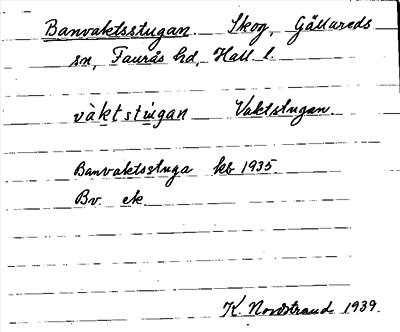 Banvaktsstugan. Skog, Gällareds
sn, Faurås hd, Hall. l.
vàktstùgan Vaktstugan.
Banvaktsstuga kb 1935.
Bv. ek.
K. Nordstrand 1939.